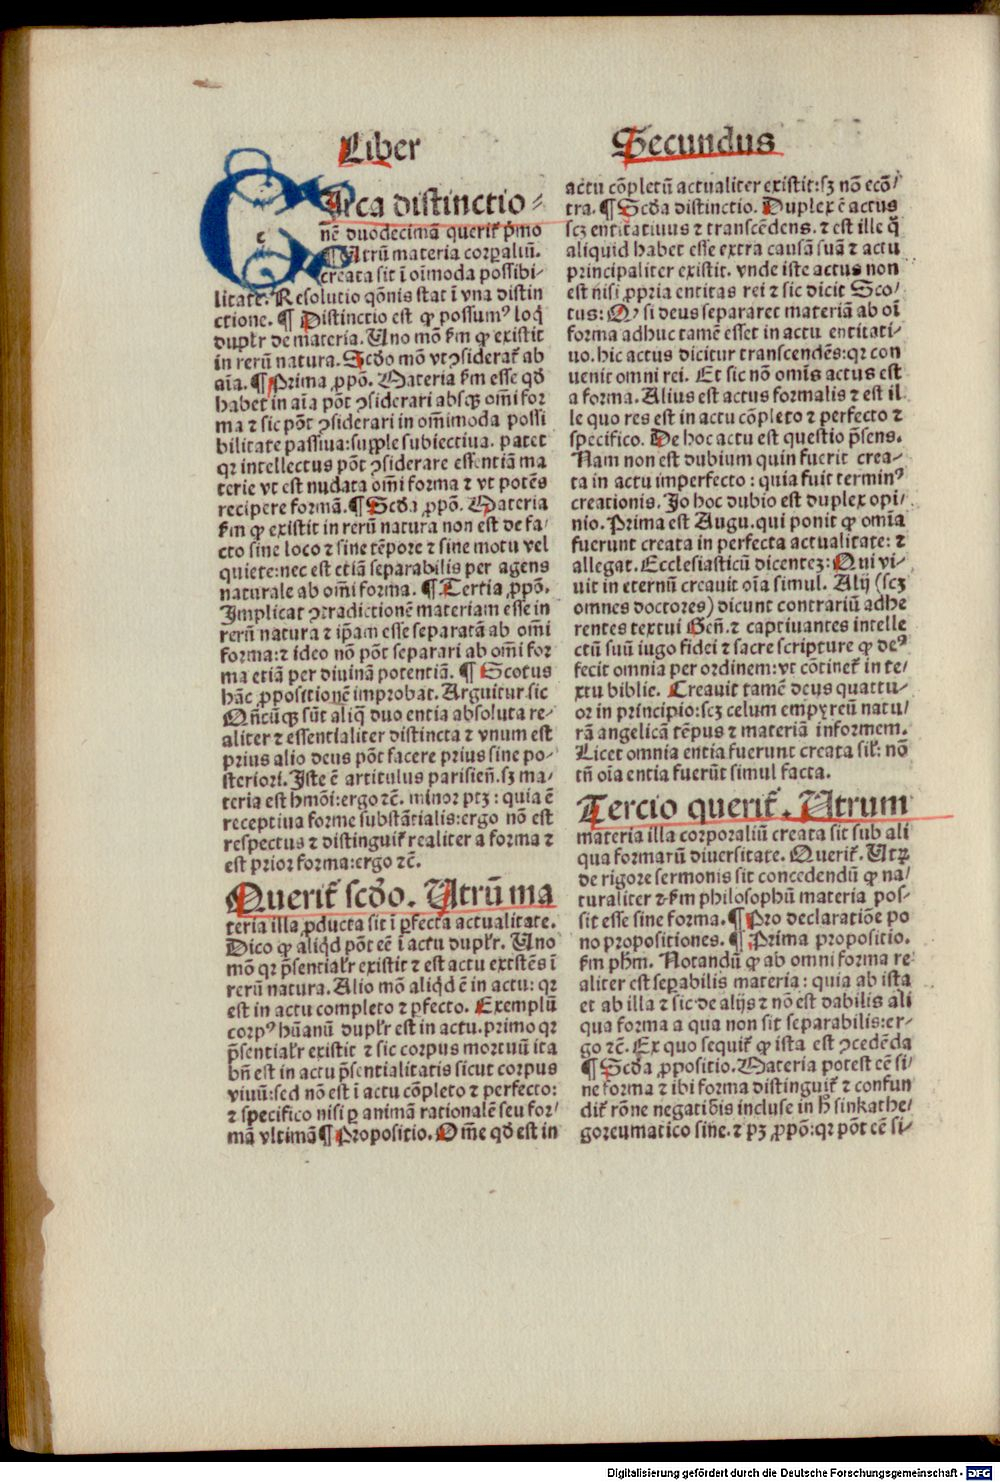 Liber Secundus
Circa distinctio-
nē duodecimā querit᷑ p̄mo
¶ Utrū materia corpaliū.
creata sit ī oīmoda possibi-
litate. Resolutio qōnis stat ī vna distin
ctione. ¶ Distinctio est ꝙ possumꝰ loq̄
duplr̄ de materia. Uno mō ẜm ꝙ existit
in rerū natura. Scd̄o mō vt ꝯsiderat᷑ ab
aīa. ¶ Prima ꝓpō. Materia ẜm esse qd̄
habet in aīa pōt ꝯsiderari absqꝫ om̄i for
ma ⁊ sic pōt ꝯsiderari in om̄imoda possi
bilitate passiua: supple subiectiua. patet
qꝛ intellectus pōt ꝯsiderare essentiā ma
terie vt est nudata om̄i forma ⁊ vt potēs
recipere formā. ¶ Scd̄a ꝓpō. Materia
ẜm ꝙ existit in rerū natura non est de fa/
cto sine loco ⁊ sine tēpore ⁊ sine motu vel
quiete: nec est etiā separabilis per agens
naturale ab om̄i forma. ¶ Tertia ꝓpō.
Implicat ꝯtradictionē materiam esse in
rerū natura ⁊ ip̄am esse separatā ab om̄i
forma: ⁊ ideo nō pōt separari ab om̄i for
ma etiā per diuinā potentiā. ¶ Scotus
hāc ꝓpositionē improbat. Arguitur sic
Qn̄cūqꝫ sūt aliq̄ duo entia absoluta re/
aliter ⁊ essentialiter distincta ⁊ vnum est
prius alio deus pōt facere prius sine po-
steriori. Iste ē artitulus parisien̄. sꝫ ma/
teria est hmōi: ergo ⁊c̄. minor ptꝫ: quia ē
receptiua forme substātialis: ergo nō est
respectus ⁊ distinguit᷑ realiter a forma ⁊
est prior forma: ergo ⁊c̄.
Querit᷑ scd̄o. Utrū ma
teria illa ꝓducta sit ī ꝑfecta actualitate.
Dico ꝙ aliqd̄ pōt eē ī actu duplr̄. Uno
mō qꝛ p̄sentialr̄ existit ⁊ est actu exn̄s ī
rerū natura. Alio mō aliqd̄ ē in actu: qꝛ
est in actu completo ⁊ ꝑfecto. Exemplū
corpꝰ hūanū duplr̄ est in actu. primo qꝛ
p̄sentialr̄ existit ⁊ sic corpus mortuū ita
bn̄ est in actu p̄sentialitatis sicut corpus
viuū: sed nō est ī actu cōpleto ⁊ perfecto:
⁊ specifico nisi ꝑ animā rationalē seu for/
mā vltimā ¶ Propositio. Om̄e qd̄ est in
actu cōpletū actualiter existit: sꝫ nō ecō/
tra. ¶ Scd̄a distinctio. Duplex ē actus
scꝫ entitatiuus ⁊ transcēdens. ⁊ est ille q̄
aliquid habet esse extra causā suā ⁊ actu
principaliter existit. vnde iste actus non
est nisi ꝓpria entitas rei ⁊ sic dicit Sco/
tus: Qꝫ si deus separaret materiā ab oī
forma adhuc tamē esset in actu entitati/
uo. hic actus dicitur transcendēs: qꝛ con
uenit omni rei. Et sic nō omīs actus est
a forma. Alius est actus formalis ⁊ est il
le quo res est in actu cōpleto ⁊ perfecto ⁊
specifico. De hoc actu est questio p̄sens.
Nam non est dubium quin fuerit crea-
ta in actu imperfecto: quia fuit terminꝰ
creationis. Io hoc dubio est duplex opi/
nio. Prima est Augu. qui ponit ꝙ om̄ia
fuerunt creata in perfecta actualitate: ⁊
allegat. Ecclesiasticū dicenteꝫ: Qui vi-
uit in eternū creauit oīa simul. Alij (scꝫ
omnes doctores) dicunt contrariū adhe
rentes textui Gen̄. ⁊ captiuantes intelle
ctū suū iugo fidei ⁊ sacre scripture ꝙ deꝰ
fecit omnia per ordinem: vt cōtinet᷑ in te/
xtu biblie. Creauit tamē deus quattu/
or in principio: scꝫ celum empyreū natu/
rā angelicā tēpus ⁊ materiā informem.
Licet omnia entia fuerunt creata sil᷑: nō
tn̄ oīa entia fuerūt simul facta.
Tercio querit᷑. Utrum
materia illa corporaliū creata sit sub ali
qua formarū diuersitate. Querit᷑. Utꝝ
de rigore sermonis sit concedendū ꝙ na/
turaliter ⁊ ẜm philosophū materia pos-
sit esse sine forma. ¶ Pro declaratiōe po
no propositiones. ¶ Prima propositio.
ẜm phm̄. Notandū ꝙ ab omni forma re
aliter est sepabilis materia: quia ab ista
et ab illa ⁊ sic de alijs ⁊ nō est dabilis ali
qua forma a qua non sit separabilis: er-
go ⁊c̄. Ex quo sequit᷑ ꝙ ista est ꝯcedēda
¶ Scd̄a ꝓpositio. Materia potest eē si/
ne forma ⁊ ibi forma distinguit᷑ ⁊ confun
dit᷑ rōne negatiōis incluse in h̄ sinkathe/
goreumatico sine. ⁊ pꝫ ꝓpō: qꝛ pōt eē si-
Digitalisierung gefördert durch die Deutsche Forschungsgemeinschaft - DFG